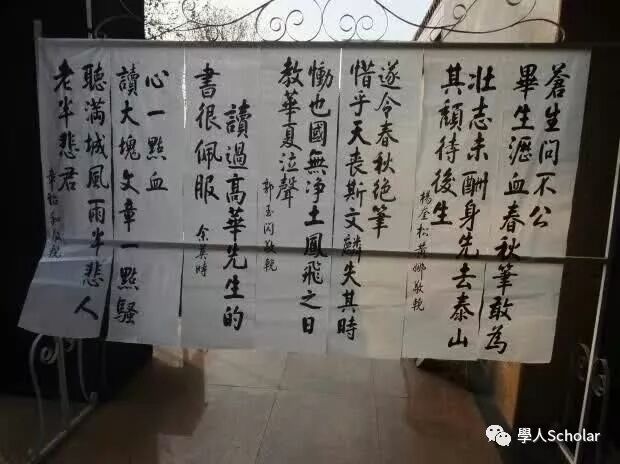 畢生瀝血春秋筆敢為
蒼生問不公
壯志未酬身先去泰山
其頹待後生
楊奎松黃娜敬輓
惜乎天喪斯文麟失其時
遂令春秋絕筆
慟也國無淨土鳳飛之日
教華夏泣聲
郭玉閃敬輓
讀過高華先生的
書很佩服
余英時
讀大塊文章一點騷
心一點血
聽滿城風雨半悲人
老半悲君
章詒和敬輓
學人Scholar